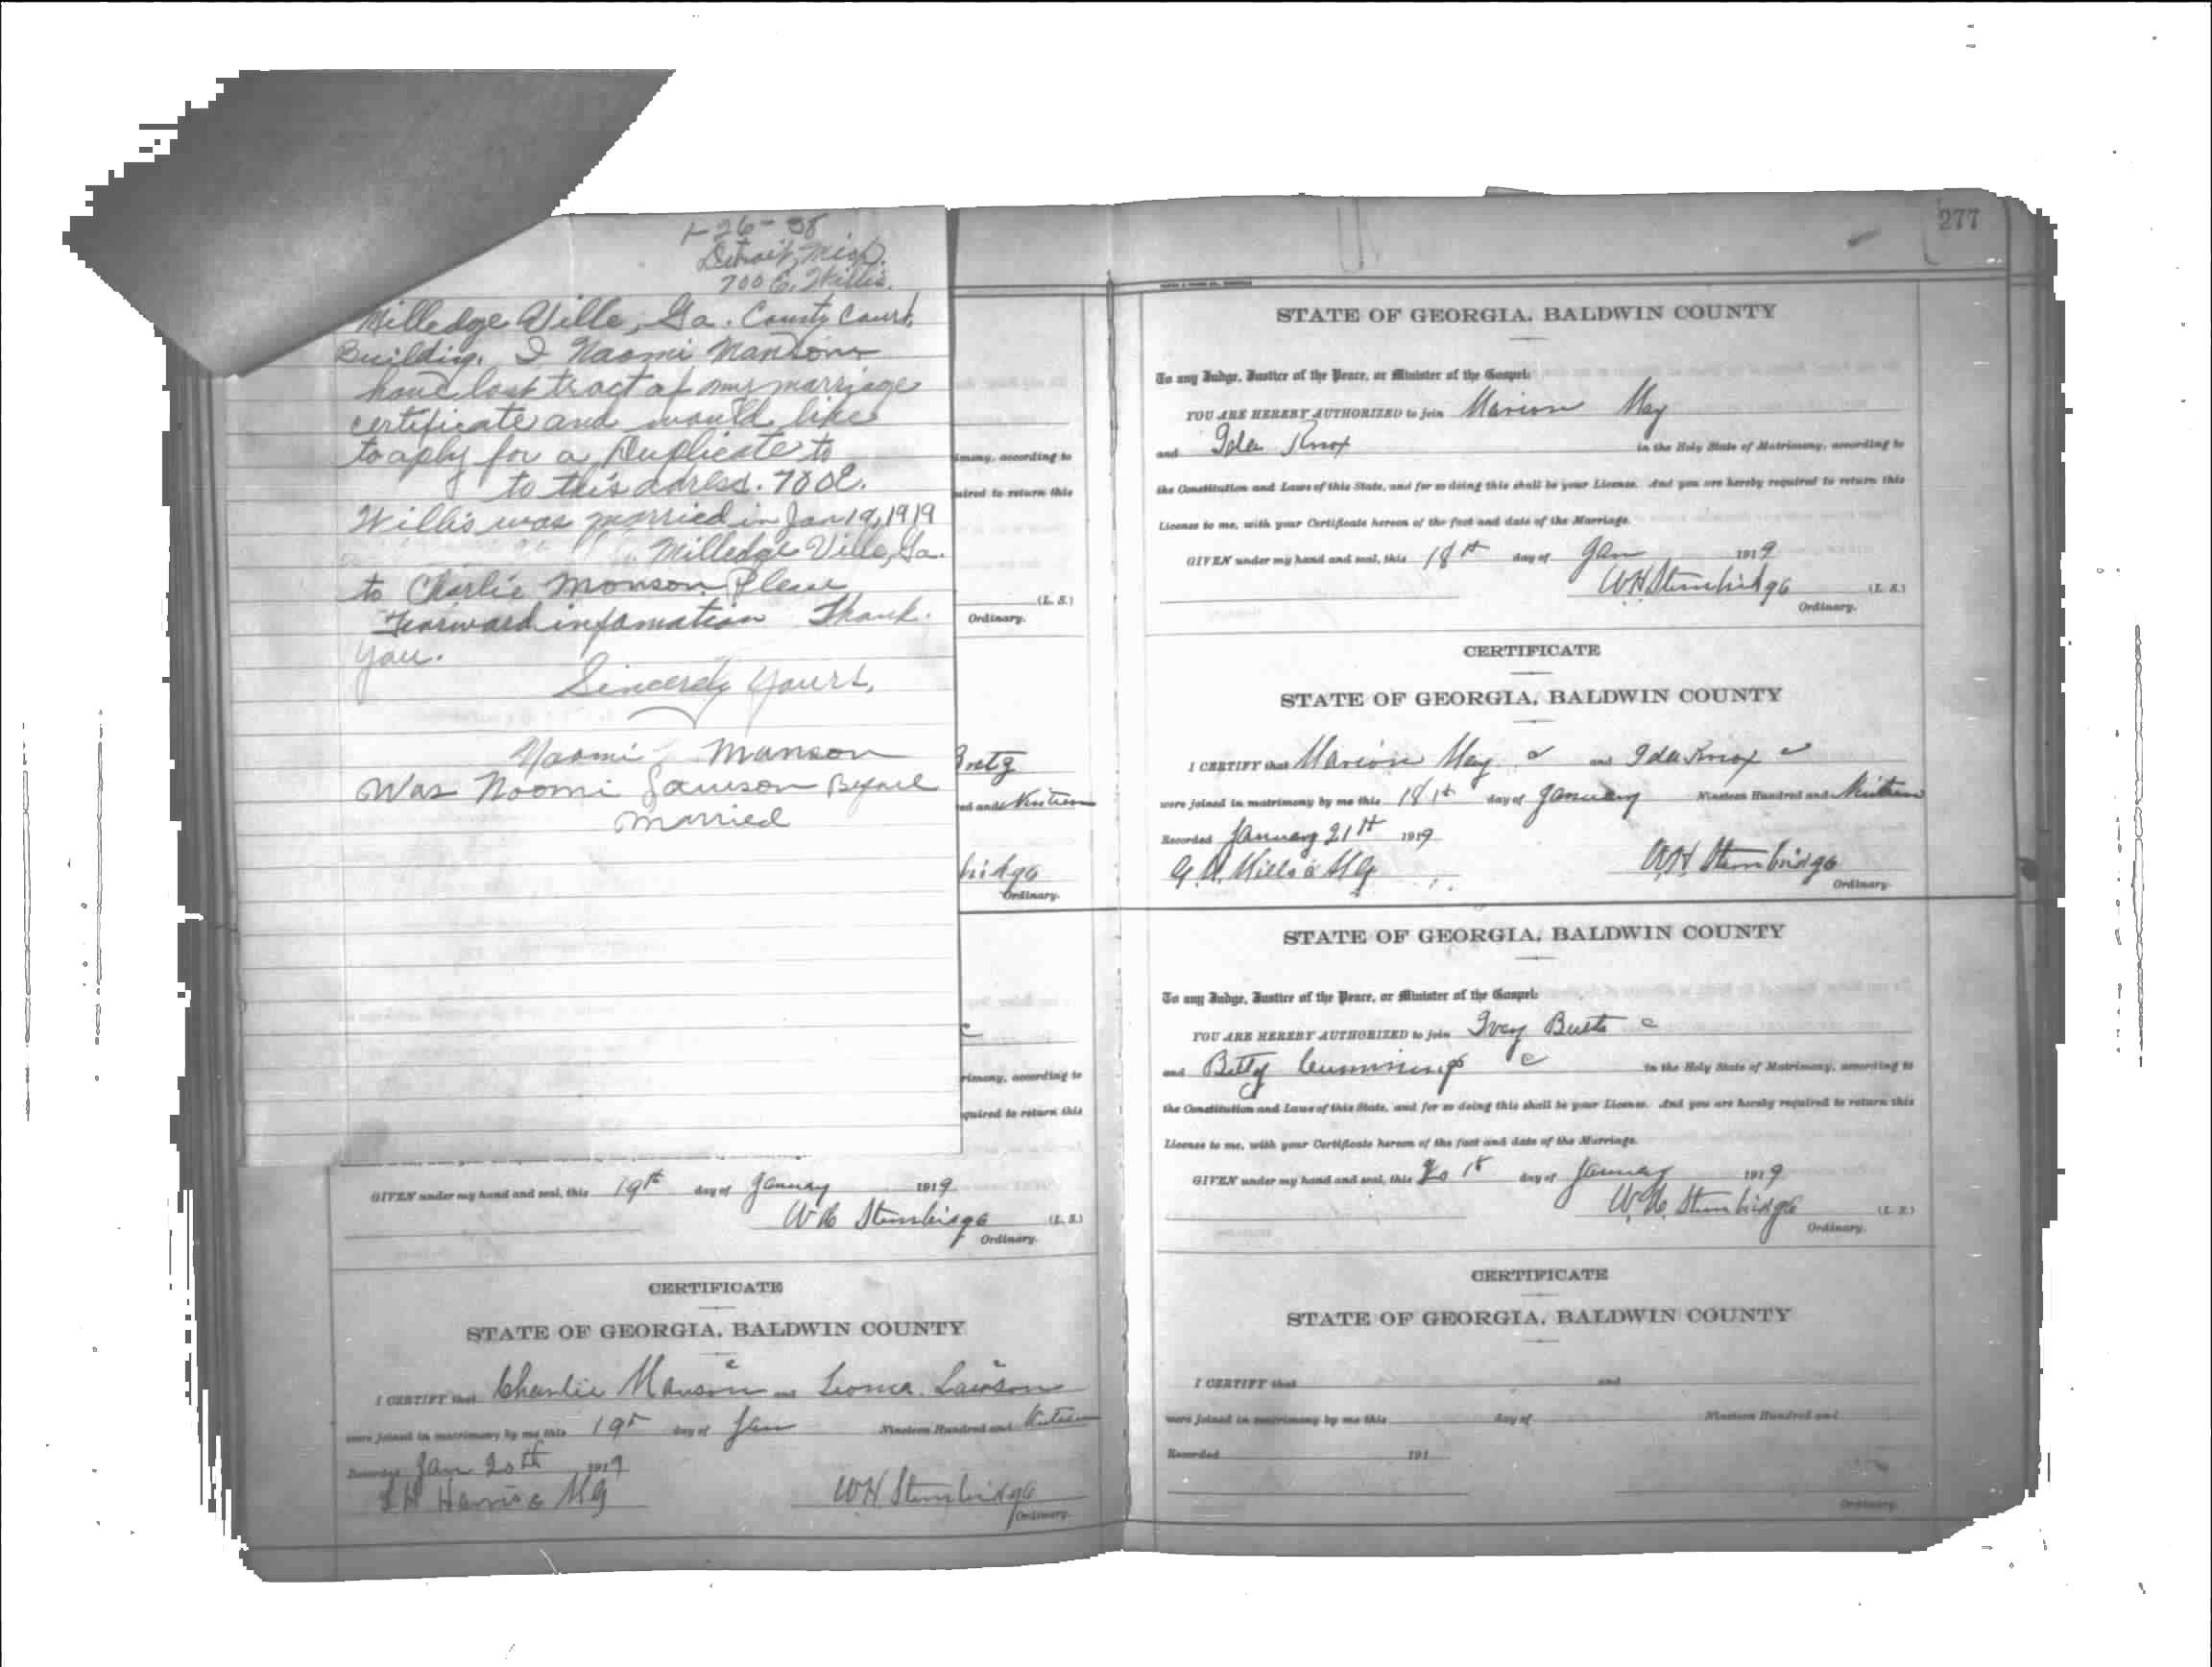 1-26-38
Detroit, Mich.
700 E. Willis.
Milledge Ville, Ga. County Court,
Building. I Naomi Manson
have lost tract of my marriage
certificate and would like
to aply for a Duplicate to
to this adress. 700 E.
Willis was married in Jan 19, 1919
Milledge Ville, Ga.
to Charlie Monson. Please
Forward infomation Thank.
you.
Sincerely Yours,
Naomi Manson
Was Noomi Lawson Before
married
imony, according to
uired to return this
(L. S.)
Ordinary.
ed and Ninteen
bridge
Ordinary.
c
rimony, according to
quired to return this
GIVEN under my hand and seal, this 19th day of January 1919
W H Stembridge (L. S.)
Ordinary.
CERTIFICATE
STATE OF GEORGIA, BALDWIN COUNTY
c c
I CERTIFY that Charlie Manson and Leonia Lawson
were joined in matrimony by me this 19th day of Jan Nineteen Hundred and Ninteen
Recorded Jan 20th 1919
Harris c MG WH Stembridge
Ordinary.
277
STATE OF GEORGIA, BALDWIN COUNTY
To any Judge, Justice of the Peace, or Minister of the Gospel:
YOU ARE HEREBY AUTHORIZED to join Marion May
and Ida Knox in the Holy State of Matrimony, according to
the Constitution and Laws of this State, and for so doing this shall be your License. And you are hereby required to return this
License to me, with your Certificate hereon of the fact and date of the Marriage.
GIVEN under my hand and seal, this 18th day of Jan 1919
WH Stembridge (L. S.)
Ordinary.
CERTIFICATE
STATE OF GEORGIA, BALDWIN COUNTY
I CERTIFY that Marion May c and Ida Knox c
were joined in matrimony by me this 18th day of January Nineteen Hundred and Ninteen
Recorded January 21st 1919
MG WH Stembridge
Ordinary.
STATE OF GEORGIA, BALDWIN COUNTY
To any Judge, Justice of the Peace, or Minister of the Gospel:
YOU ARE HEREBY AUTHORIZED to join Ivey Butts c
and Betty Cummings c in the Holy State of Matrimony, according to
the Constitution and Laws of this State, and for so doing this shall be your License. And you are hereby required to return this
License to me, with your Certificate hereon of the fact and date of the Marriage.
GIVEN under my hand and seal, this day of January 1919
W.H. Stembridge (L. S.)
Ordinary.
CERTIFICATE
STATE OF GEORGIA, BALDWIN COUNTY
I CERTIFY that and
were joined in matrimony by me this day of Nineteen Hundred and
Recorded 191
Ordinary.